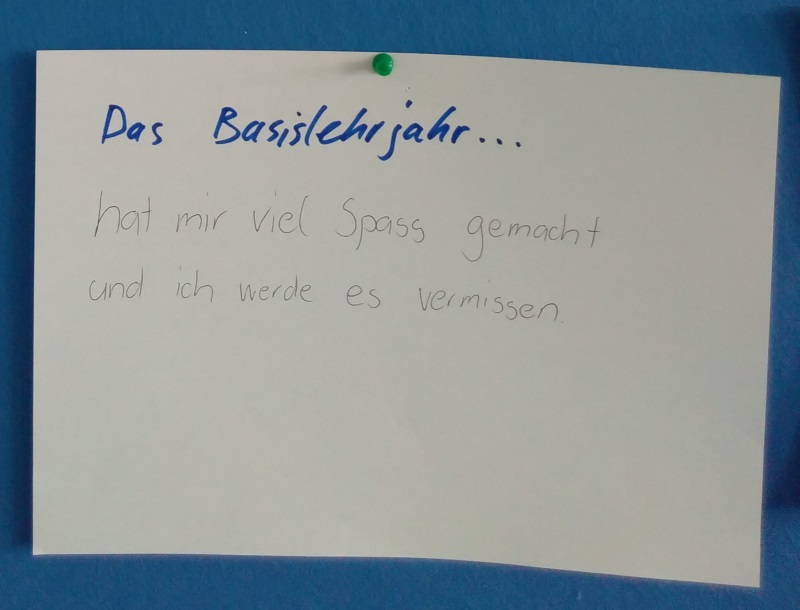 Das Basislehrjahr...
hat mir viel Spass gemacht
und ich werde es vermissen.